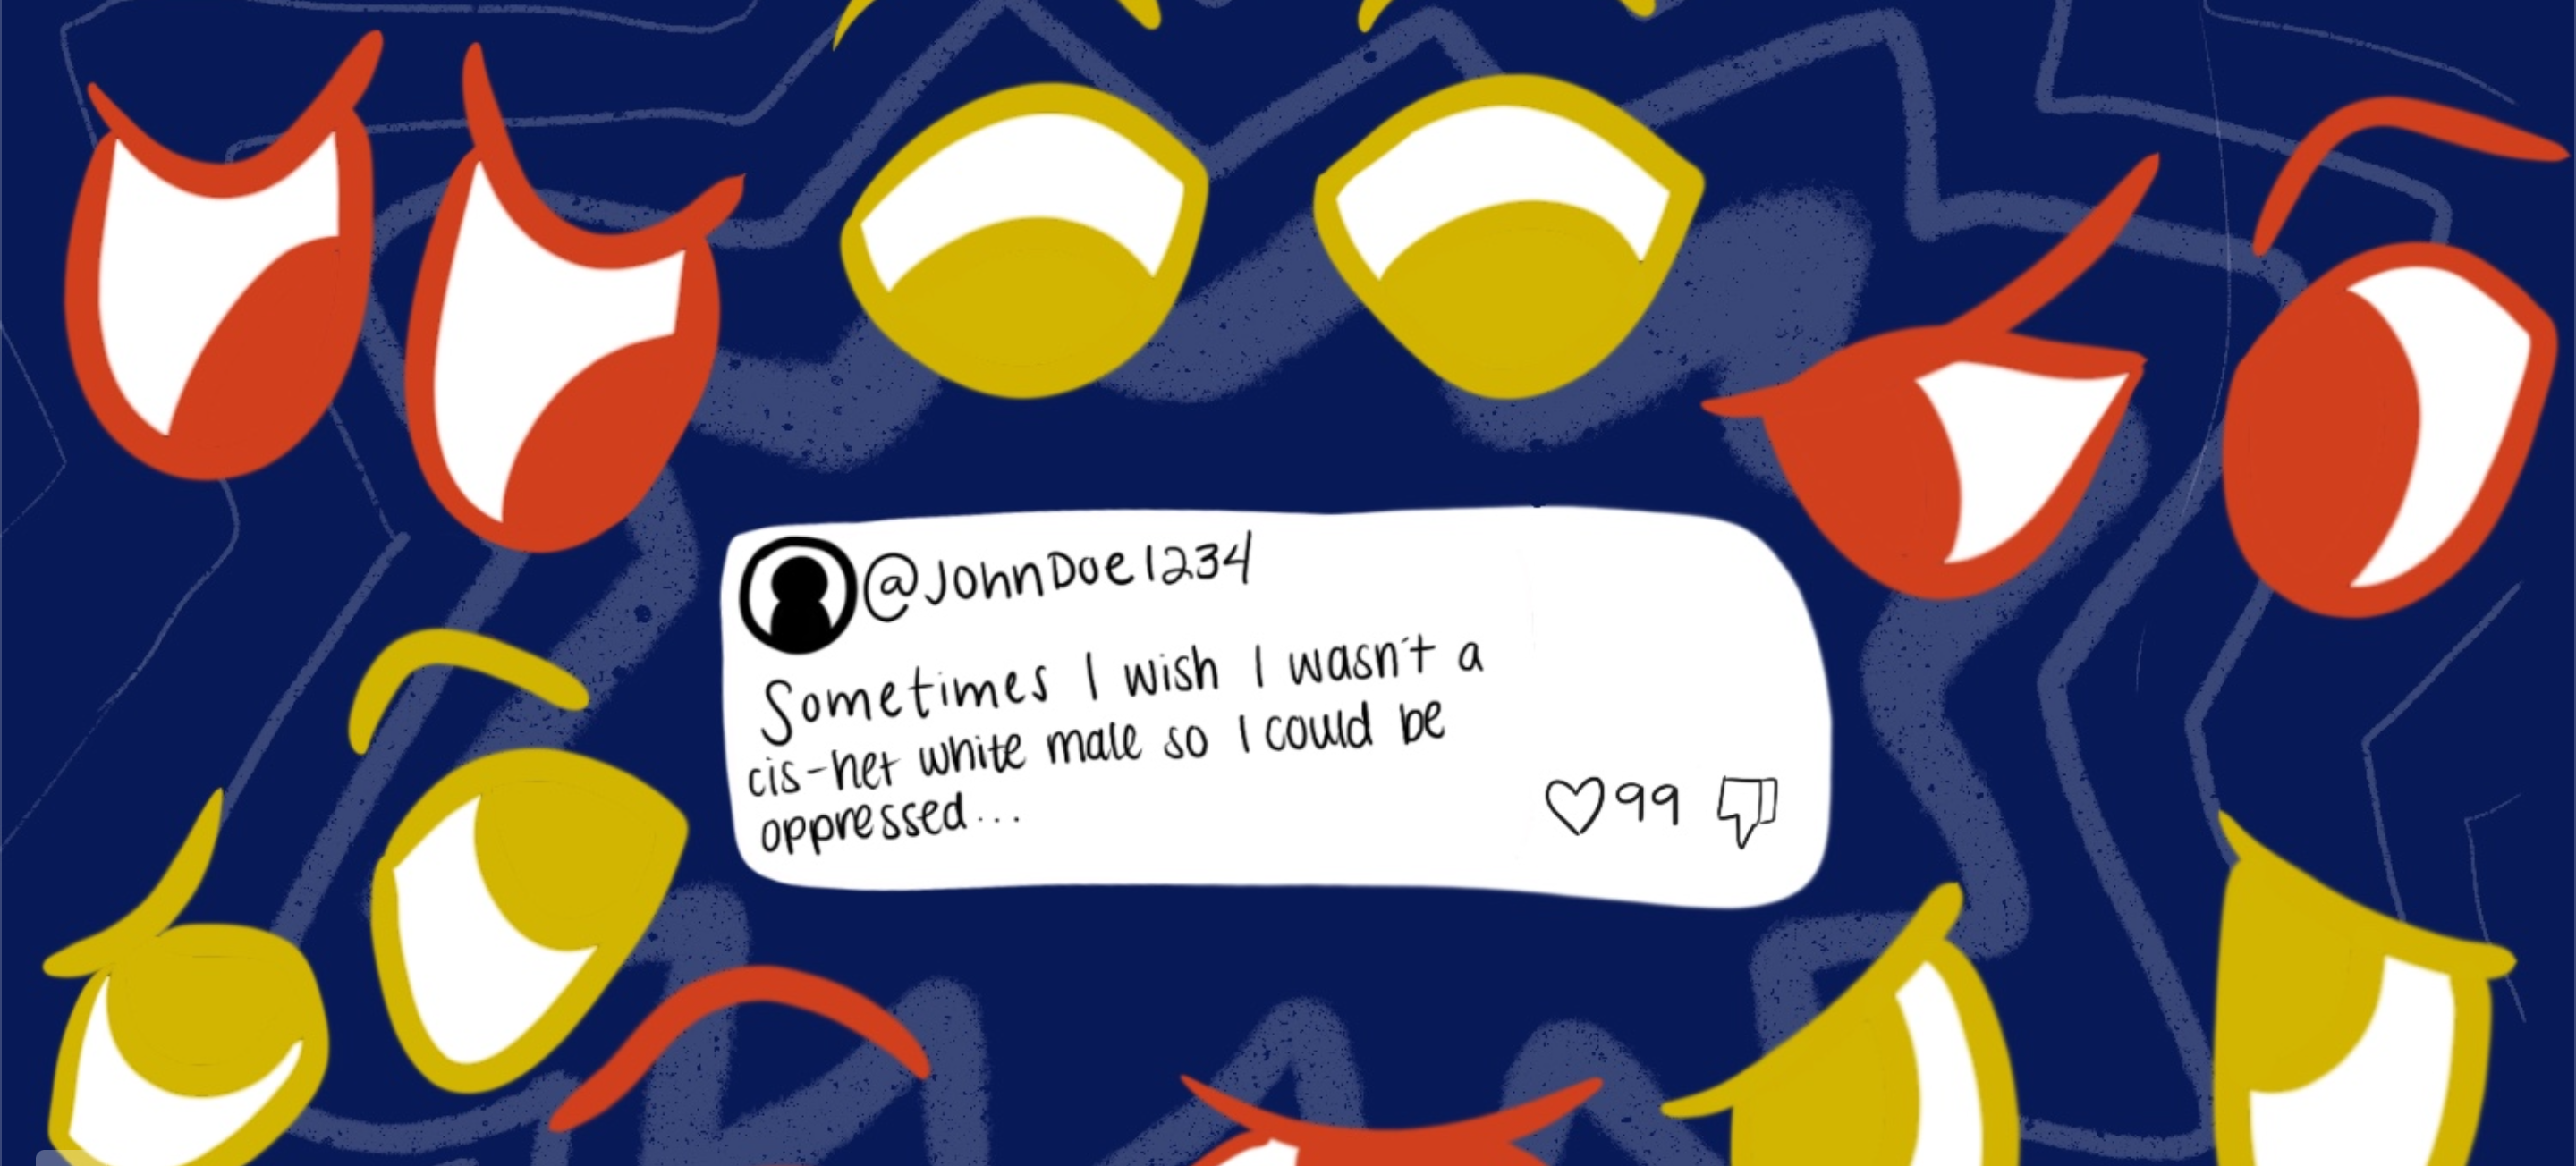 @JohnDoe1234
Sometimes I wish I wasn't a
cis-het white male so I could be
oppressed...
99